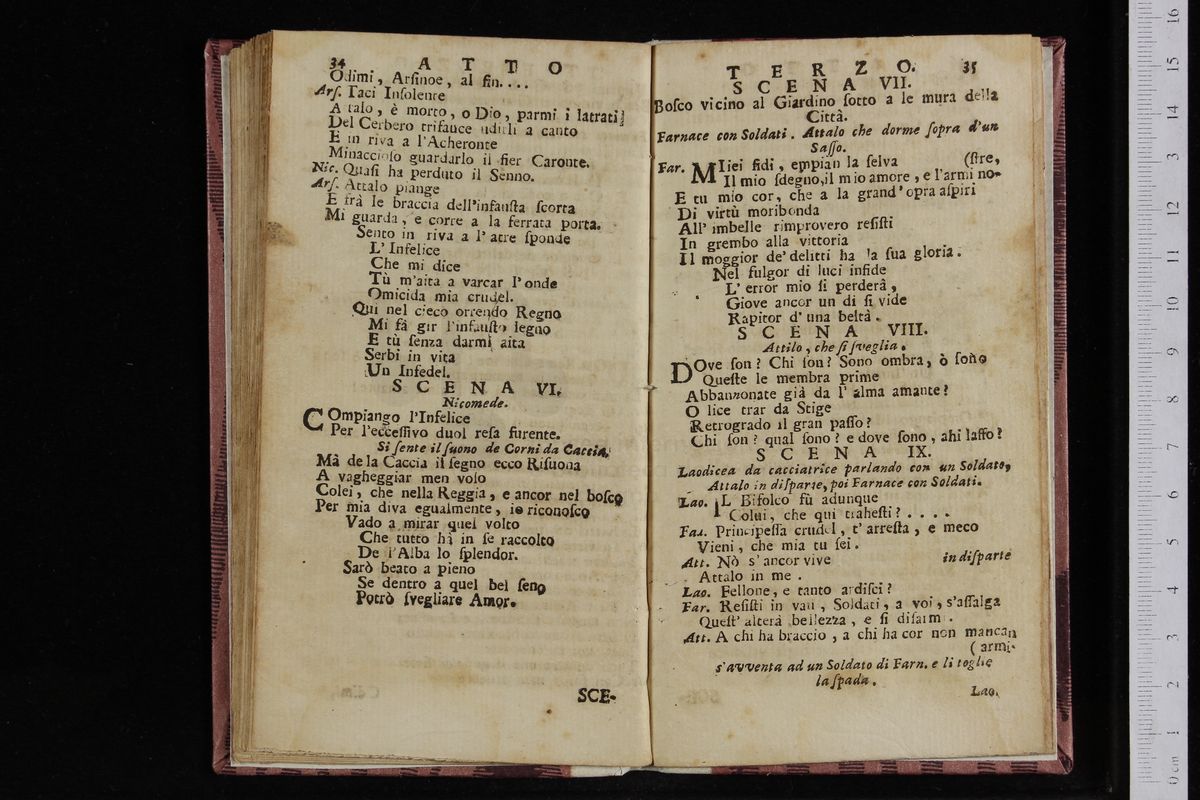 34 A T T O
Odimi, Arſinoe, al fin....
Arſ. Taci Inſolente
Atalo, è morto, o Dio, parmi i latrati
Del Cerbero trifauce udirli a canto
E in riva a l'Acheronte
Minaccioſo guardarlo il fier Caronte.
Nic. Quaſi ha perduto il Senno.
Arſ. Attalo piange
E frà le braccia dell'infauſta ſcorta
Mi guarda, e corre a la ferrata porta.
Sento in riva a l'atre ſponde
L'Infelice
Che mi dice
Tù m'aita a varcar l'onde
Omicida mia crudel.
Qui nel cieco orrendo Regno
Mi fà gir l'infauſto legno
E tù ſenza darmi aita
Serbi in vita
Un Infedel.
S C E N A VI.
Nicomede.
COmpiango l'Infelice
Per l'ecceſſivo duol reſa furente.
Si ſente il ſuono de Corni da Caccia.
Mà de la Caccia il ſegno ecco Riſuona
A vagheggiar men volo
Colei, che nella Reggia, e ancor nel boſco
Per mia diva egualmente, io riconoſco
Vado a mirar quel volto
Che tutto hà in ſe raccolto
De l'Alba lo ſplendor.
Sarò beato a pieno
Se dentro a quel bel ſeno
Potrò ſvegliare Amor.
SCE-
T E R Z O. 35
S C E N A VII.
Boſco vicino al Giardino ſotto a le mura della
Città.
Farnace con Soldati. Attalo che dorme ſopra d'un
Saſſo.
Far. MIiei fidi, empian la ſelva (ſtre,
Il mio ſdegno, il mio amore, e l'armi no-
E tu mio cor, che a la grand'opra aſpiri
Di virtù moribonda
All' imbelle rimprovero reſiſti
In grembo alla vittoria
Il moggior de' delitti ha la ſua gloria.
Nel fulgor di luci infide
L'error mio ſi perderà,
Giove ancor un di ſi vide
Rapitor d'una beltà.
S C E N A VIII.
Attilo, che ſi ſveglia.
DOve ſon? Chi ſon? Sono ombra, ò ſono
Queſte le membra prime
Abbannonate già da l'alma amante?
O lice trar da Stige
Retrogrado il gran paſſo?
Chi ſon? qual ſono? e dove ſono, ahi laſſo?
S C E N A IX.
Laodicea da cacciatrice parlando con un Soldato,
Attalo in diſparte, poi Farnace con Soldati.
Lao. IL Bifolco fù adunque
Colui, che qui traheſti?....
Far. Principeſſa crudel, t'arreſta, e meco
Vieni, che mia tu ſei.
Att. Nò s'ancor vive in diſparte
Attalo in me.
Lao. Fellone, e tanto ardiſci?
Far. Reſiſti in van, Soldati, a voi, s'aſſalga
Queſt'alterà bellezza, e ſi diſarm.
Att. A chi ha braccio, a chi ha cor non mancan
(armi.
s'avventa ad un Soldato di Farn. e li toglie
la ſpada.
Lao.